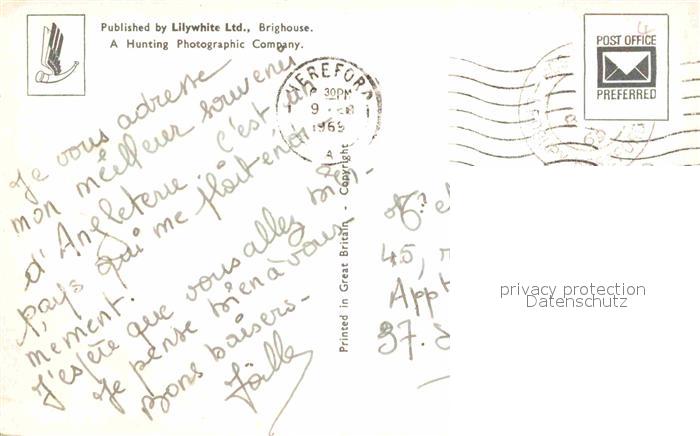 Published by Lilywhite Ltd., Brighouse.
A Hunting Photographic Company.
POST OFFICE
PREFERRED
HEREFORD
30PM
9
1969
A
Je vous adresse
mon meilleur souvenir
d'Angleterre. C'est un
pays qui me plaît
mement.
J'espère que vous allez bien.
Je pense bien à vous.
Bons baisers
Joëlle
Printed in Great Britain - Copyright
45,
App
37.
privacy protection
Datenschutz